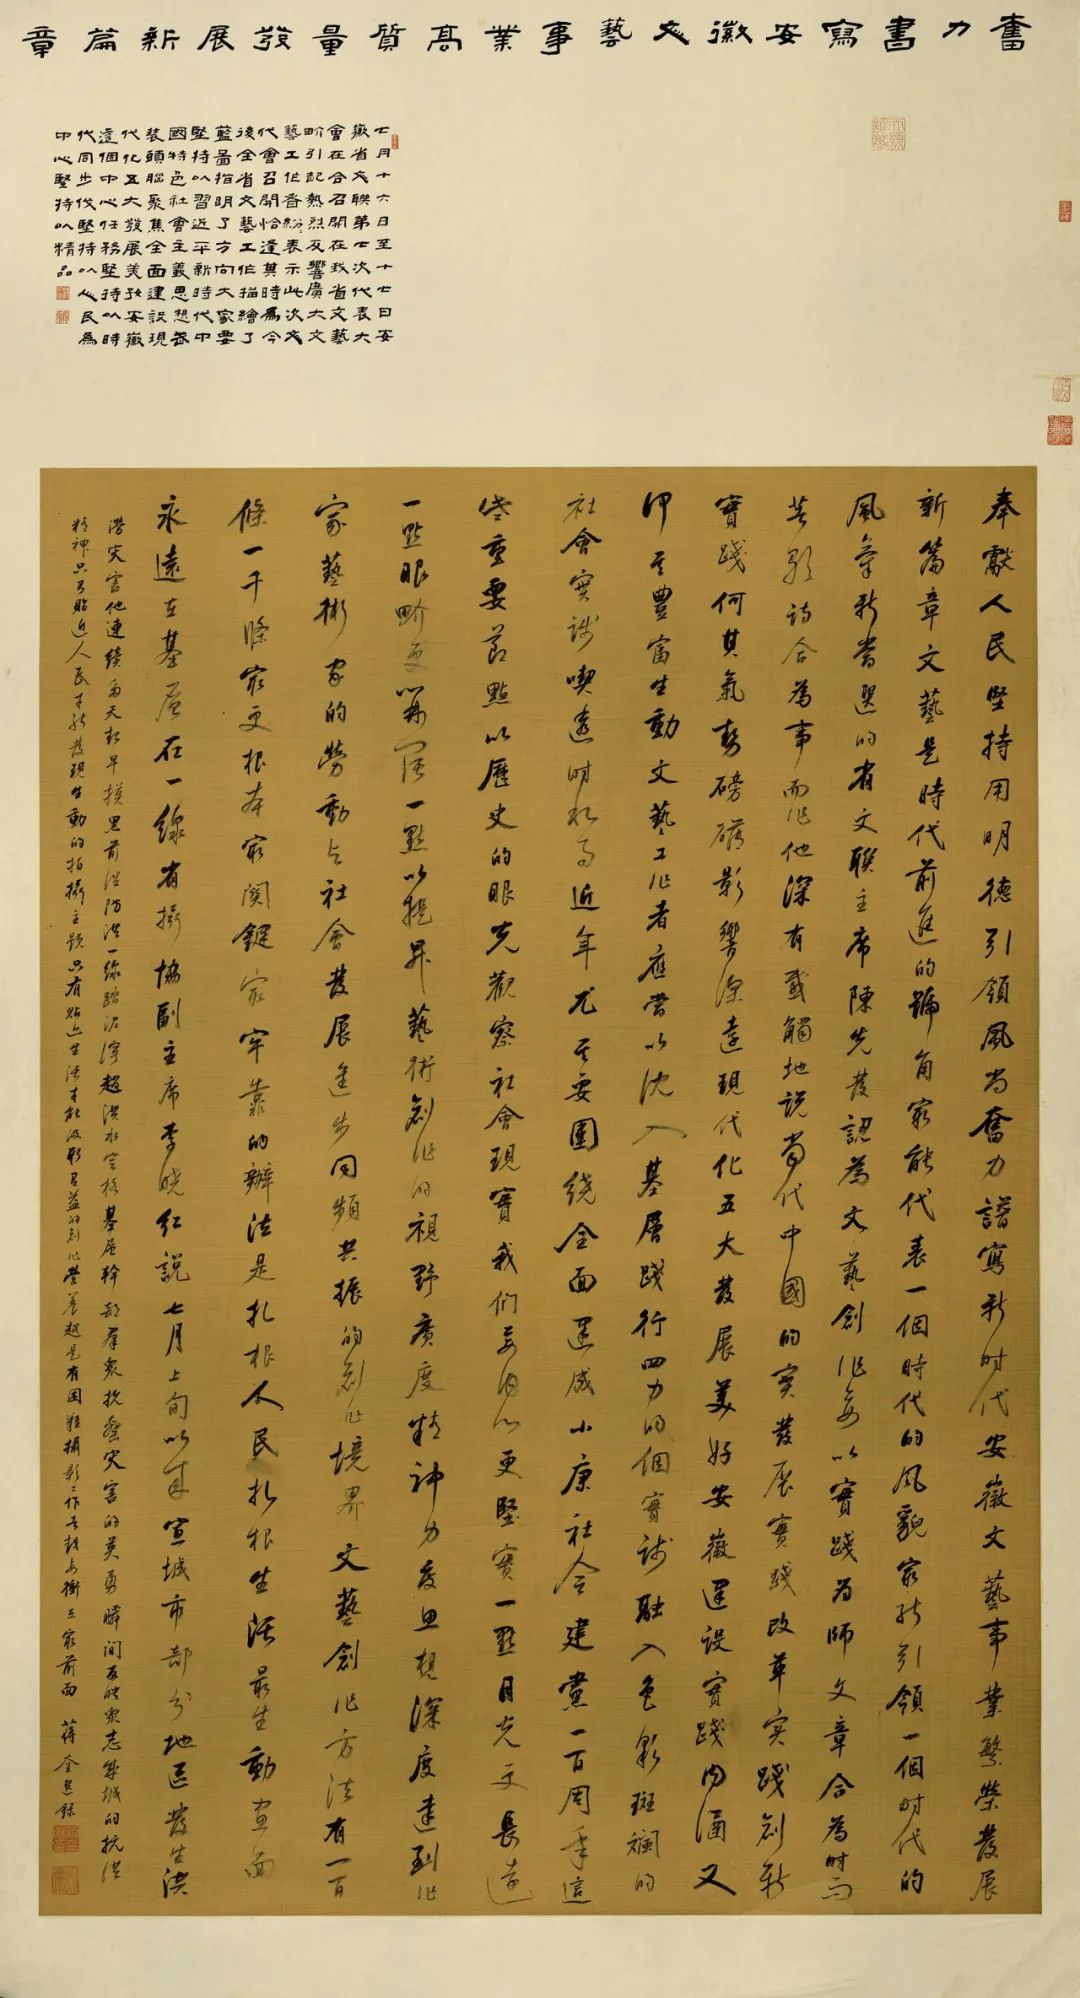 奮力書寫安徽文藝事業高質量發展新篇章
七月十六日至十七日安
徽省文聯第七次代表大
會在合召開在我省文藝
界引起熱烈反響廣大文
藝工作者紛紛表示此次文
代會召開恰逢其時爲今
後全省文藝工作描繪了
藍圖指明了方向大家要
堅持以習近平新時代中
國特色社會主義思想武
裝頭腦聚焦全面建設現
代化五大發展美好安徽
這個中心任務堅持以時
代同步伐堅持以人民爲
中心堅持以精品
奉獻人民堅持用明德引領風尚奮力譜寫新时代安徽文藝事業繁榮發展
新篇章文藝是時代前進的號角最能代表一個時代的风貌最能引領一個时代的
風氣新當選的省文聯主席陳先發認為文藝創作要以實踐為師文章合為时而
著歌诗合為事而作他深有感觸地説當代中國的實發展實踐改革实踐創新
實踐何其氣勢磅礴影響深遠現代化五大發展美好安徽建設實踐内涵又
何其豐富生動文藝工作者應當以沈入基層踐行四力的個實踐融入色彩斑斕的
社會實踐喫透时代近年尤其要圍繞全面建成小康社会建黨一百周年這
些重要節點以歷史的眼光觀察社會現實我們要内心更堅實一點目光更長遠
一點眼界更開闊一點以提昇藝術創作的視野廣度精神力度思想深度達到作
家藝術家的勞動與社會發展進步同頻共振的創作境界文藝創作方法有一百
條一千條最更根本最關鍵最牢靠的辦法是扎根人民扎根生活最生動画面
永遠在基層在一線省攝協副主席李曉紅説七月上旬以來宣城市部分地區發生洪
澇災害他連續多天起早摸黑前往防洪一線踏泥濘趟洪水定格基層幹部羣衆抗擊災害的英勇瞬間反映衆志成城的抗洪
精神只有貼近人民才能發現生動的拍攝主題只有貼近生活才能汲取有益的創作營養越是有困難攝影工作者越要衝在最前面 蔣